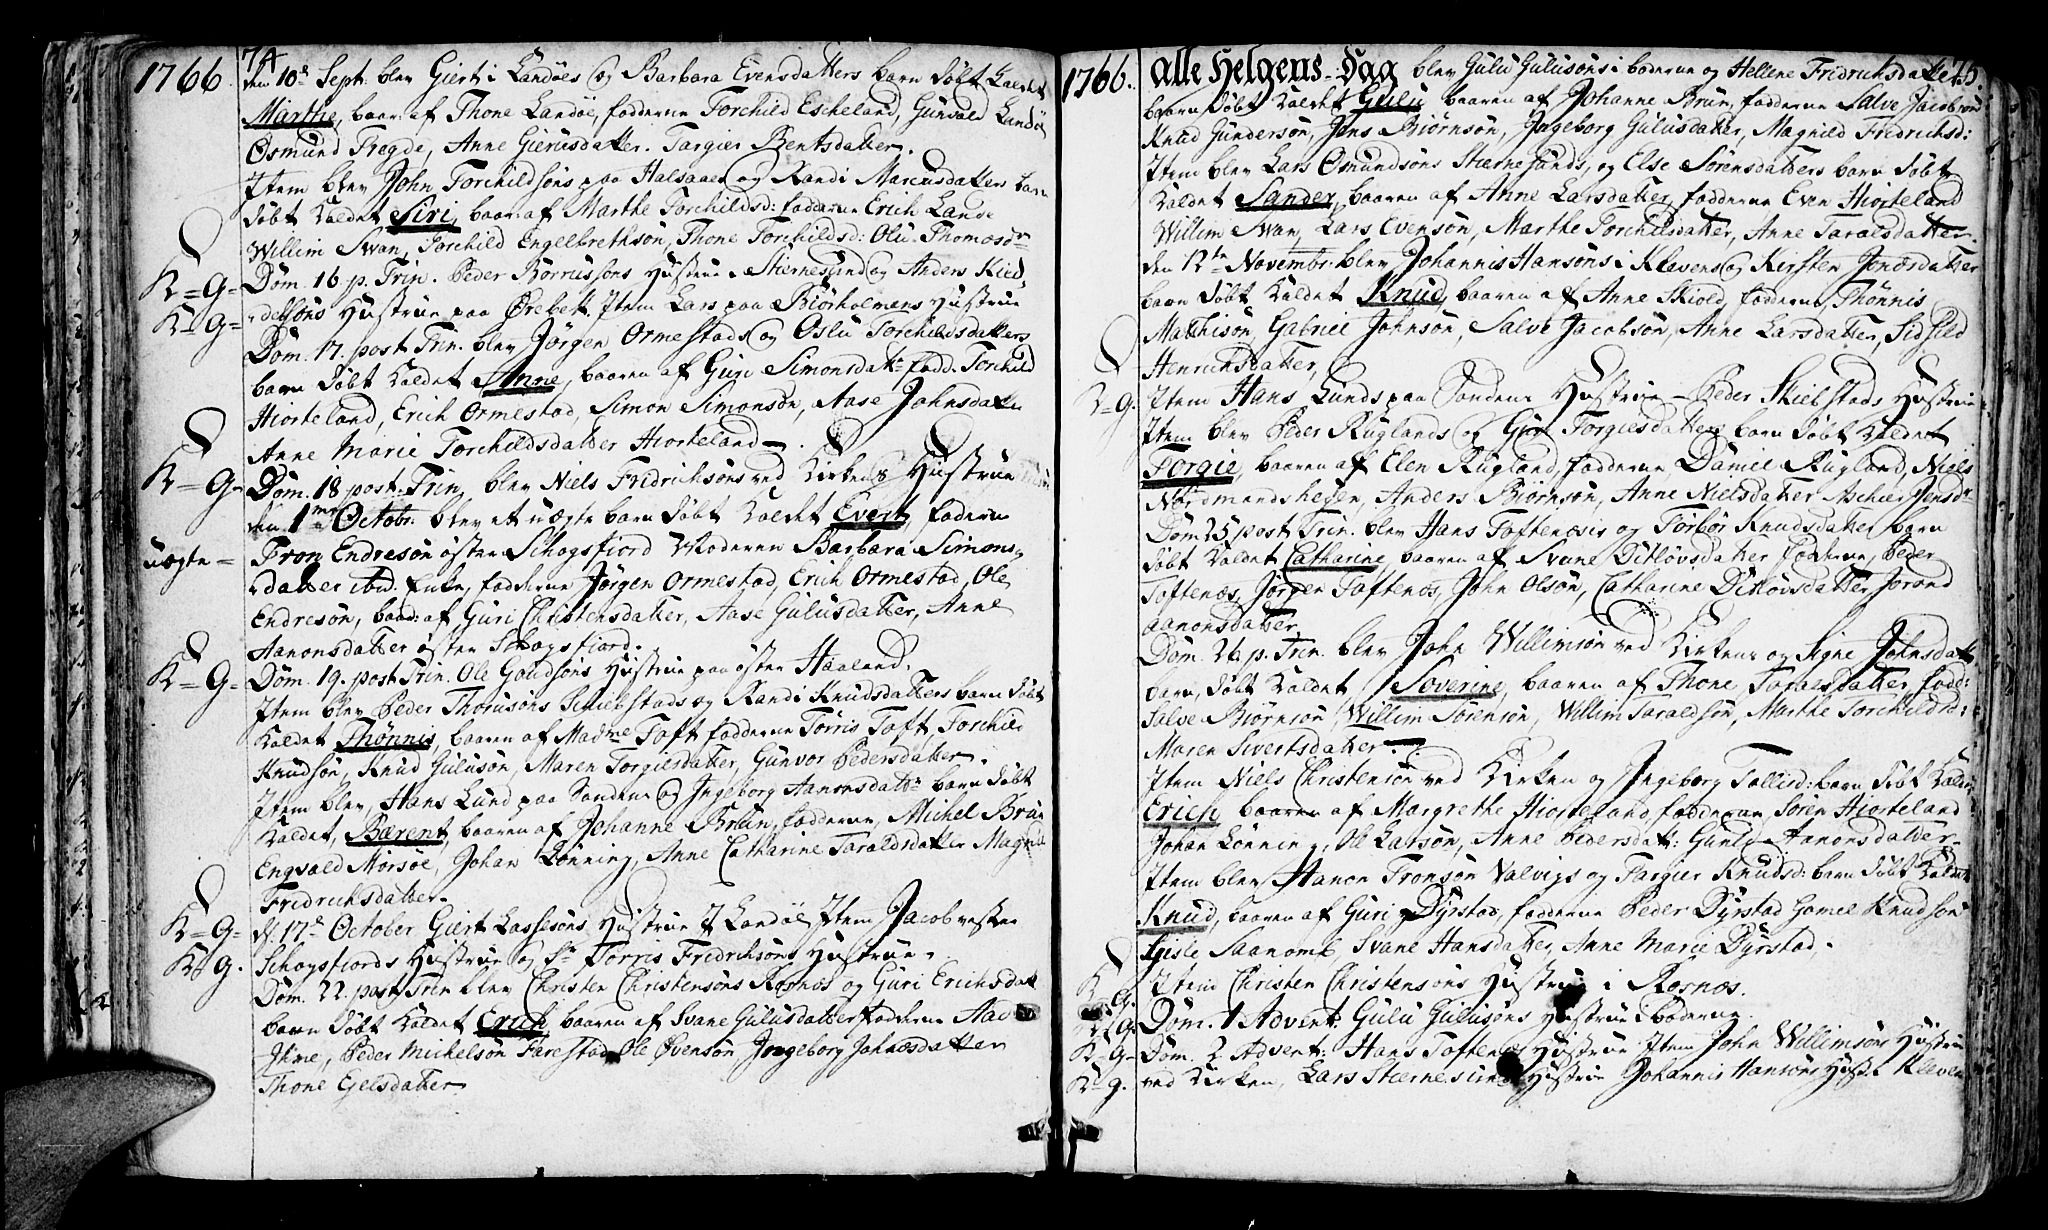 1766.
74
den 10de Sept: blev Giert i Landöes og Barbara Evensdatters barn döbt kaldet
Marthe, baar: af Thone Landöe, fadderne Torchild Escheland, Gunvald Landöe
Osmund Tregde, Anne Gierusdatter. Targier Bentsdatter.
Item blev John Torchildsöns paa Halsaaen og Randi Marcusdatters barn
döbt kaldet Siri, baar: af Marthe Torchildsd: fadderne Erich Lande
Willim Swan, Torchild Engelbrethsön, Thone Torchildsd: Olu Thomasdr
K=G= Dom. 16. p. Trin. Peder Börrussöns Hustrue i Stiernesund og Anders Kied,,
K=G= ,,delsöns Hustrue paa Örebek, Item Lars paa Biörholmens Hustrue
Dom. 17. post Trin. blev Jörgen Ormestads og Oslu Torchildsdatters
barn döbt kaldet Anne, baaren af Guri Simonsdatr fadd: Torchild
Hiorteland, Erich Ormestad, Simon Simonsön, Aase Johnsdatter
Anne Marie Torchildsdatter Hiorteland.
K=G= Dom. 18. post Trin. blev Niels Fridrichsöns ved Kirkens Hustrue
den 1me Octobr: blev et uægte barn döbt kaldet Evert, faderen
uægte= Tron Endresön östen Schogsfiord Moderen Barbara Simons,,
,,datter ibid. Enke, fadderne Jörgen Ormestad, Erich Ormestad, Ole
Endresön, baar: af Guri Christensdatter, Aase Gulusdatter, Anne
Aanonsdatter östen Schogsfiord.
K=G= Dom. 19. post Trin. Ole Goudsöns Hustrue paa östen Haaland.
Item blev Peder Thorusöns Schiebstads og Randi Knudsdatters barn döbt
kaldet Thönnis, baaren af Madme Toft fadderne Torris Toft, Torchild
Knudsön, Knud Gulusön, Maren Torgiersdatter, Gunvor Pedersdatter.
Item blev, Hans Lund paa Sanden og Ingeborg Aanonsdatr barn döbt
kaldet, Bærent, baaren af Johanne Brun, fadderne, Michel Brun
Engvald Morsöe, Johan Lönning, Anne Catharine Taraldsdatter Magnil
Fridrichsdatter.
K=G= d. 17de October Giert Lassesöns Hustrue i Landöe Item Jacob vesten
K=g. Schogsfiords Hustrue og Sr Torris Fredrichsöns Hustrue.
Dom. 22. post Trin blev Christen Christensöns Rosnæs og Guri Erichsdatt
barn döbt kaldet Erich, baaren af Svane Gulusdatter fadderne Aad
Ihme, Peder Michelsön Farestad, Ole Evensön Ingeborg Johnsdatter
Thone Ejelsdatter
1766.
75.
Alle Helgens-Dag blev Gulu Gulusöns i boderne og Hellene Fridrichsdatters
baarn döbt kaldet Gulu baaren af Johanne Brun, fadderne Salve Jacobsön
Knud Gundersön, Jens Biörnsön, Ingeborg Gulusdatter, Magnild Fredrichsd:
Item blev Lars Osmundsöns Stiernesunds, og Else Sörensdatters barn döbt
kaldet Sander, baaren af Anne Larsdatter, fadderne Even Hiorteland
Willim Swan, Lars Evensön, Marthe Torchildsdatter, Anne Taralsdatter.
den 12te Novembr: blev Johannis Hansöns i Kleven og Kirsten Jensdatter
barn döbt kaldet Knud, baaren af Anne Skiold, fadderne, Thönnis
Mathisön, Gabriel Johnsön, Salve Jacobsön, Anne Larsdatter, Sidsild
Henrichsdatter,
K=g. Item Hans Lunds paa Sandene Hustrue - Peder Skiebstads Hustrue
Item blev Peder Ruglands og Guri Torgiesdatters barn döbt kaldet
Torgie, baaren af Elen Rugland, fadderne Daniel Rugland, Niels
Nordmandshegen, Anders Biörnsön, Anne Nielsdatter Ascher Jensdr
Dom. 25. post Trin. blev Hans Toftenæsis og Torbör Knudsdatter barn
döbt kaldet Catharine, baaren af Svane Ditlövsdatter fadderne, Peder
Toftenæs, Jörgen Toftenæs, John Olsön, Catharine Ditlövsdatter, Jorand
Aanonsdatter
Dom. 26. p. Trin. blev John Willimsön ved Kirken og Signe Johnsdatt
barn, döbt kaldet Soverine, baaren af Thone Taralsdatter, fadd:
Salve Biörnsön, Willim Sörensön, Willim Taraldsön, Marthe Torchildsd:
Maren Sivertsdatter.
Item Niels Christensön ved Kirken og Ingeborg Tollisd: barn döbt kaldet
Erich baaren af Margrethe Hiorteland, fadderne Sören Hiorteland
Johan Lönning, Ole Larsön, Anne Pedersdatt: Gunld Aanonsdatter
Item blev Aanon Tronsön Valvigs og Targier Knudsd: barn döbt kaldet
Knud, baaren af Guri Dyrstad, fadderne Peder Dyrstad Gomel Knudsön
Gisle Saanom, Svane Hansdatter, Anne Marie Dyrstad.
K=g. Item Christen Christensöns Hustrue i Rosnæs.
K=g. Dom. 1 Advent: Gulu Gulusöns Hustrue i Boderne.
K=g= Dom. 2 Advent: Hans Toftenæs Hustrue Item John Willimsöns Hustrue
K=g. ved Kirken, Lars Stiernesunds Hustrue Johannis Hansöns Hust: i Kleven